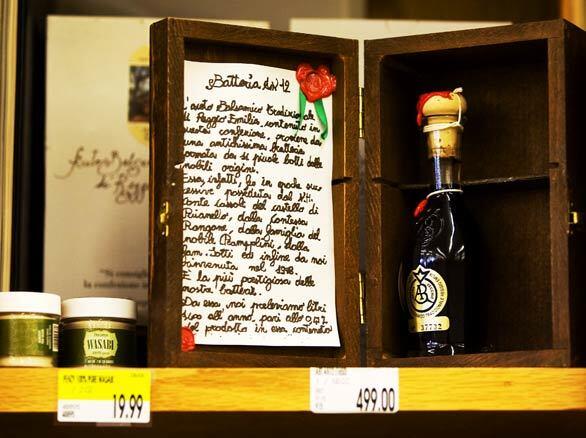 Batteria N° 12
L'aceto Balsamico Tradizionale
di Reggio Emilia, contenuto in
questa confezione, proviene da
una antichissima batteria
formata da si piccole botti dalle
nobili origini.
Essa, infatti, fu in epoche suc
cessive posseduta dal N.H.
Conte Cassoli del castello di
Rianello, dalla Contessa
Rangone, dalla famiglia del
nobile (Pampolini, dalla
fam. Sotti ed infine da noi
rinvenuta nel 1978.
È la più prestigiosa delle
nostre batterie.
Da essa noi preleviamo litri
all'anno, pari allo
del prodotto in essa contenuto
37732
WASABI
100% PURE WASABI
19.99
499.00